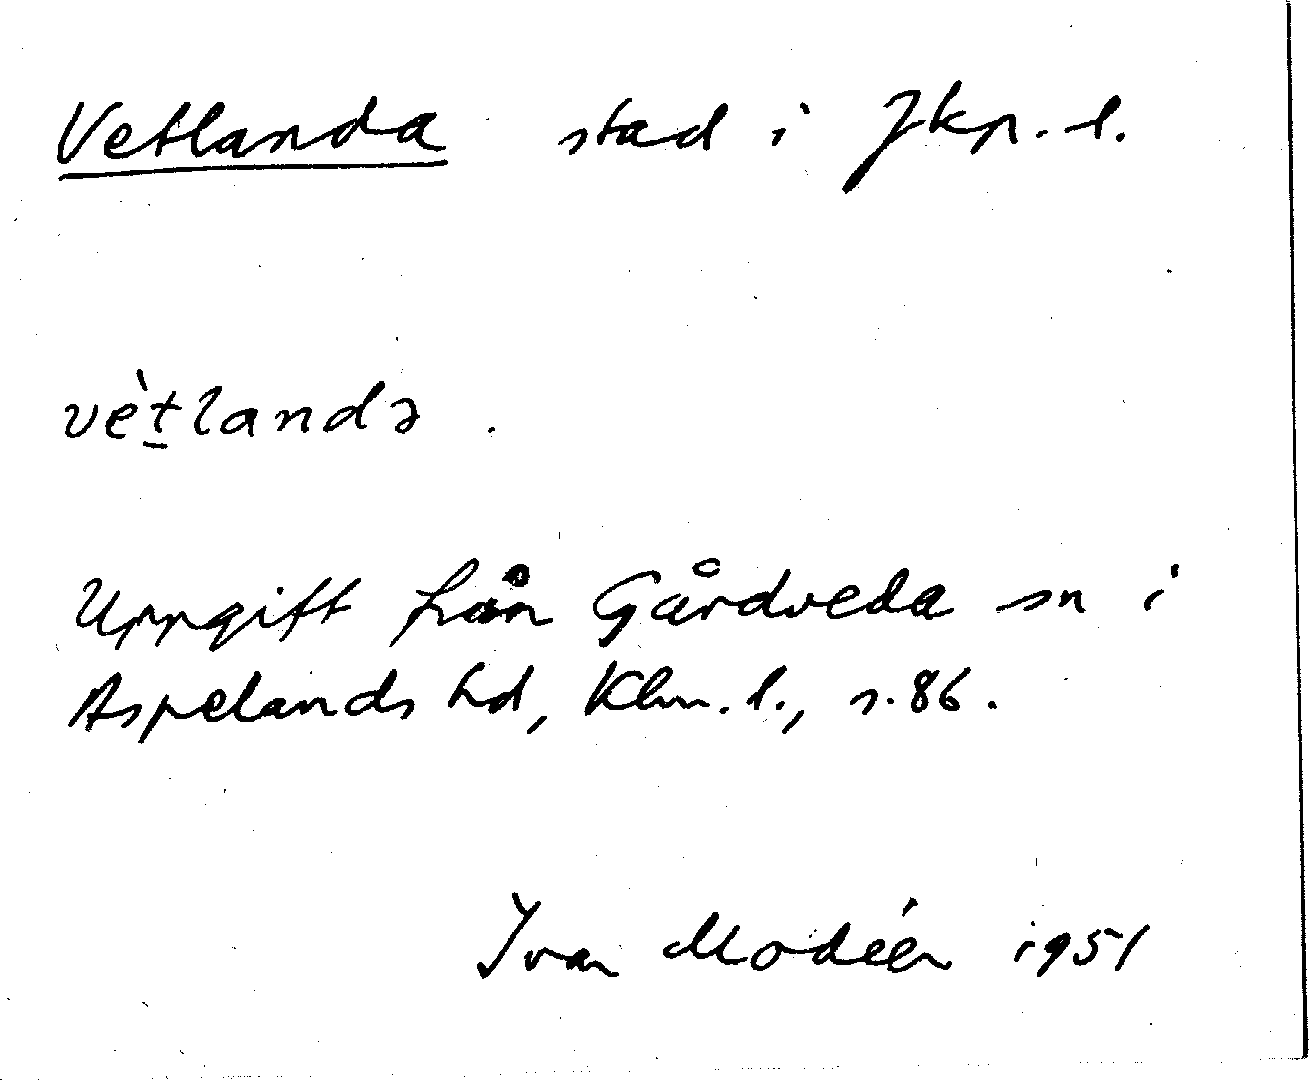 Vetlanda stad i Jkp. l.
vètlandə.
Uppgift från Gårdveda sn i
Aspelands hd, Klm. l., s. 86.
Ivar Modéer 1951